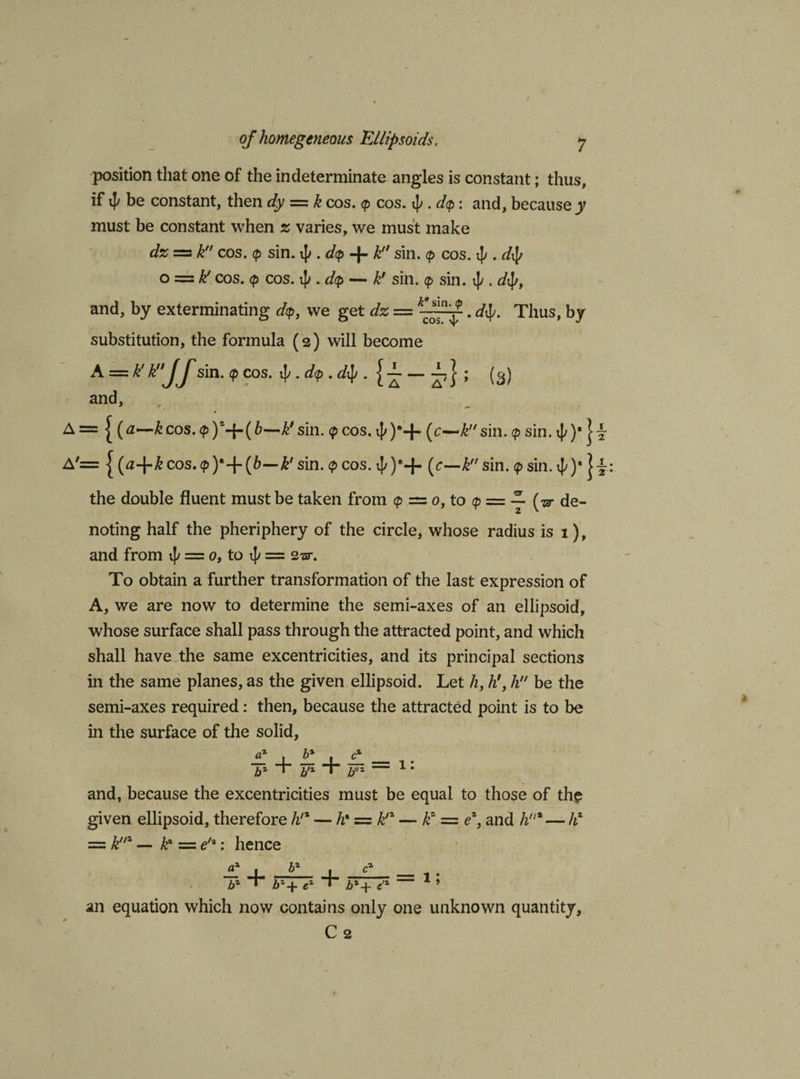 of homegeneous Ellipsoids. 7
position that one of the indeterminate angles is constant; thus,
if ψ be constant, then dy = k cos. φ cos. ψ . dφ: and, because y
must be constant when z varies, we must make
dz = k″ cos. φ sin. ψ . dφ + k″ sin. φ cos. ψ . dψ
o = k′ cos. φ cos. ψ . dφ — k′ sin. φ sin. ψ . dψ,
and, by exterminating dφ, we get dz = k″ sin. φ / cos. ψ . dψ. Thus, by
substitution, the formula (2) will become
A = k′ k″ ∫∫ sin. φ cos. ψ . dφ . dψ . { 1/Δ — 1/Δ′ } ; (3)
and,
Δ = { (a—k cos. φ)² + (b—k′ sin. φ cos. ψ)² + (c—k″ sin. φ sin. ψ)² } ½
Δ′ = { (a+k cos. φ)² + (b—k′ sin. φ cos. ψ)² + (c—k″ sin. φ sin. ψ)² } ½:
the double fluent must be taken from φ = o, to φ = ϖ/2 (ϖ de-
noting half the pheriphery of the circle, whose radius is 1),
and from ψ = o, to ψ = 2ϖ.
To obtain a further transformation of the last expression of
A, we are now to determine the semi-axes of an ellipsoid,
whose surface shall pass through the attracted point, and which
shall have the same excentricities, and its principal sections
in the same planes, as the given ellipsoid. Let h, h′, h″ be the
semi-axes required: then, because the attracted point is to be
in the surface of the solid,
a²/h² + b²/h′² + c²/h″² = 1:
and, because the excentricities must be equal to those of the
given ellipsoid, therefore h′² — h² = k′² — k² = e², and h″² — h²
= k″² — k² = e′²: hence
a²/h² + b²/h²+ e² + c²/h²+ e′² = 1;
an equation which now contains only one unknown quantity,
C 2